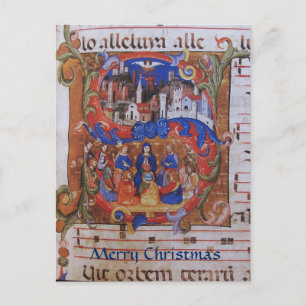 lo alleluya alle
Merry Christmas
uit orbem terarū